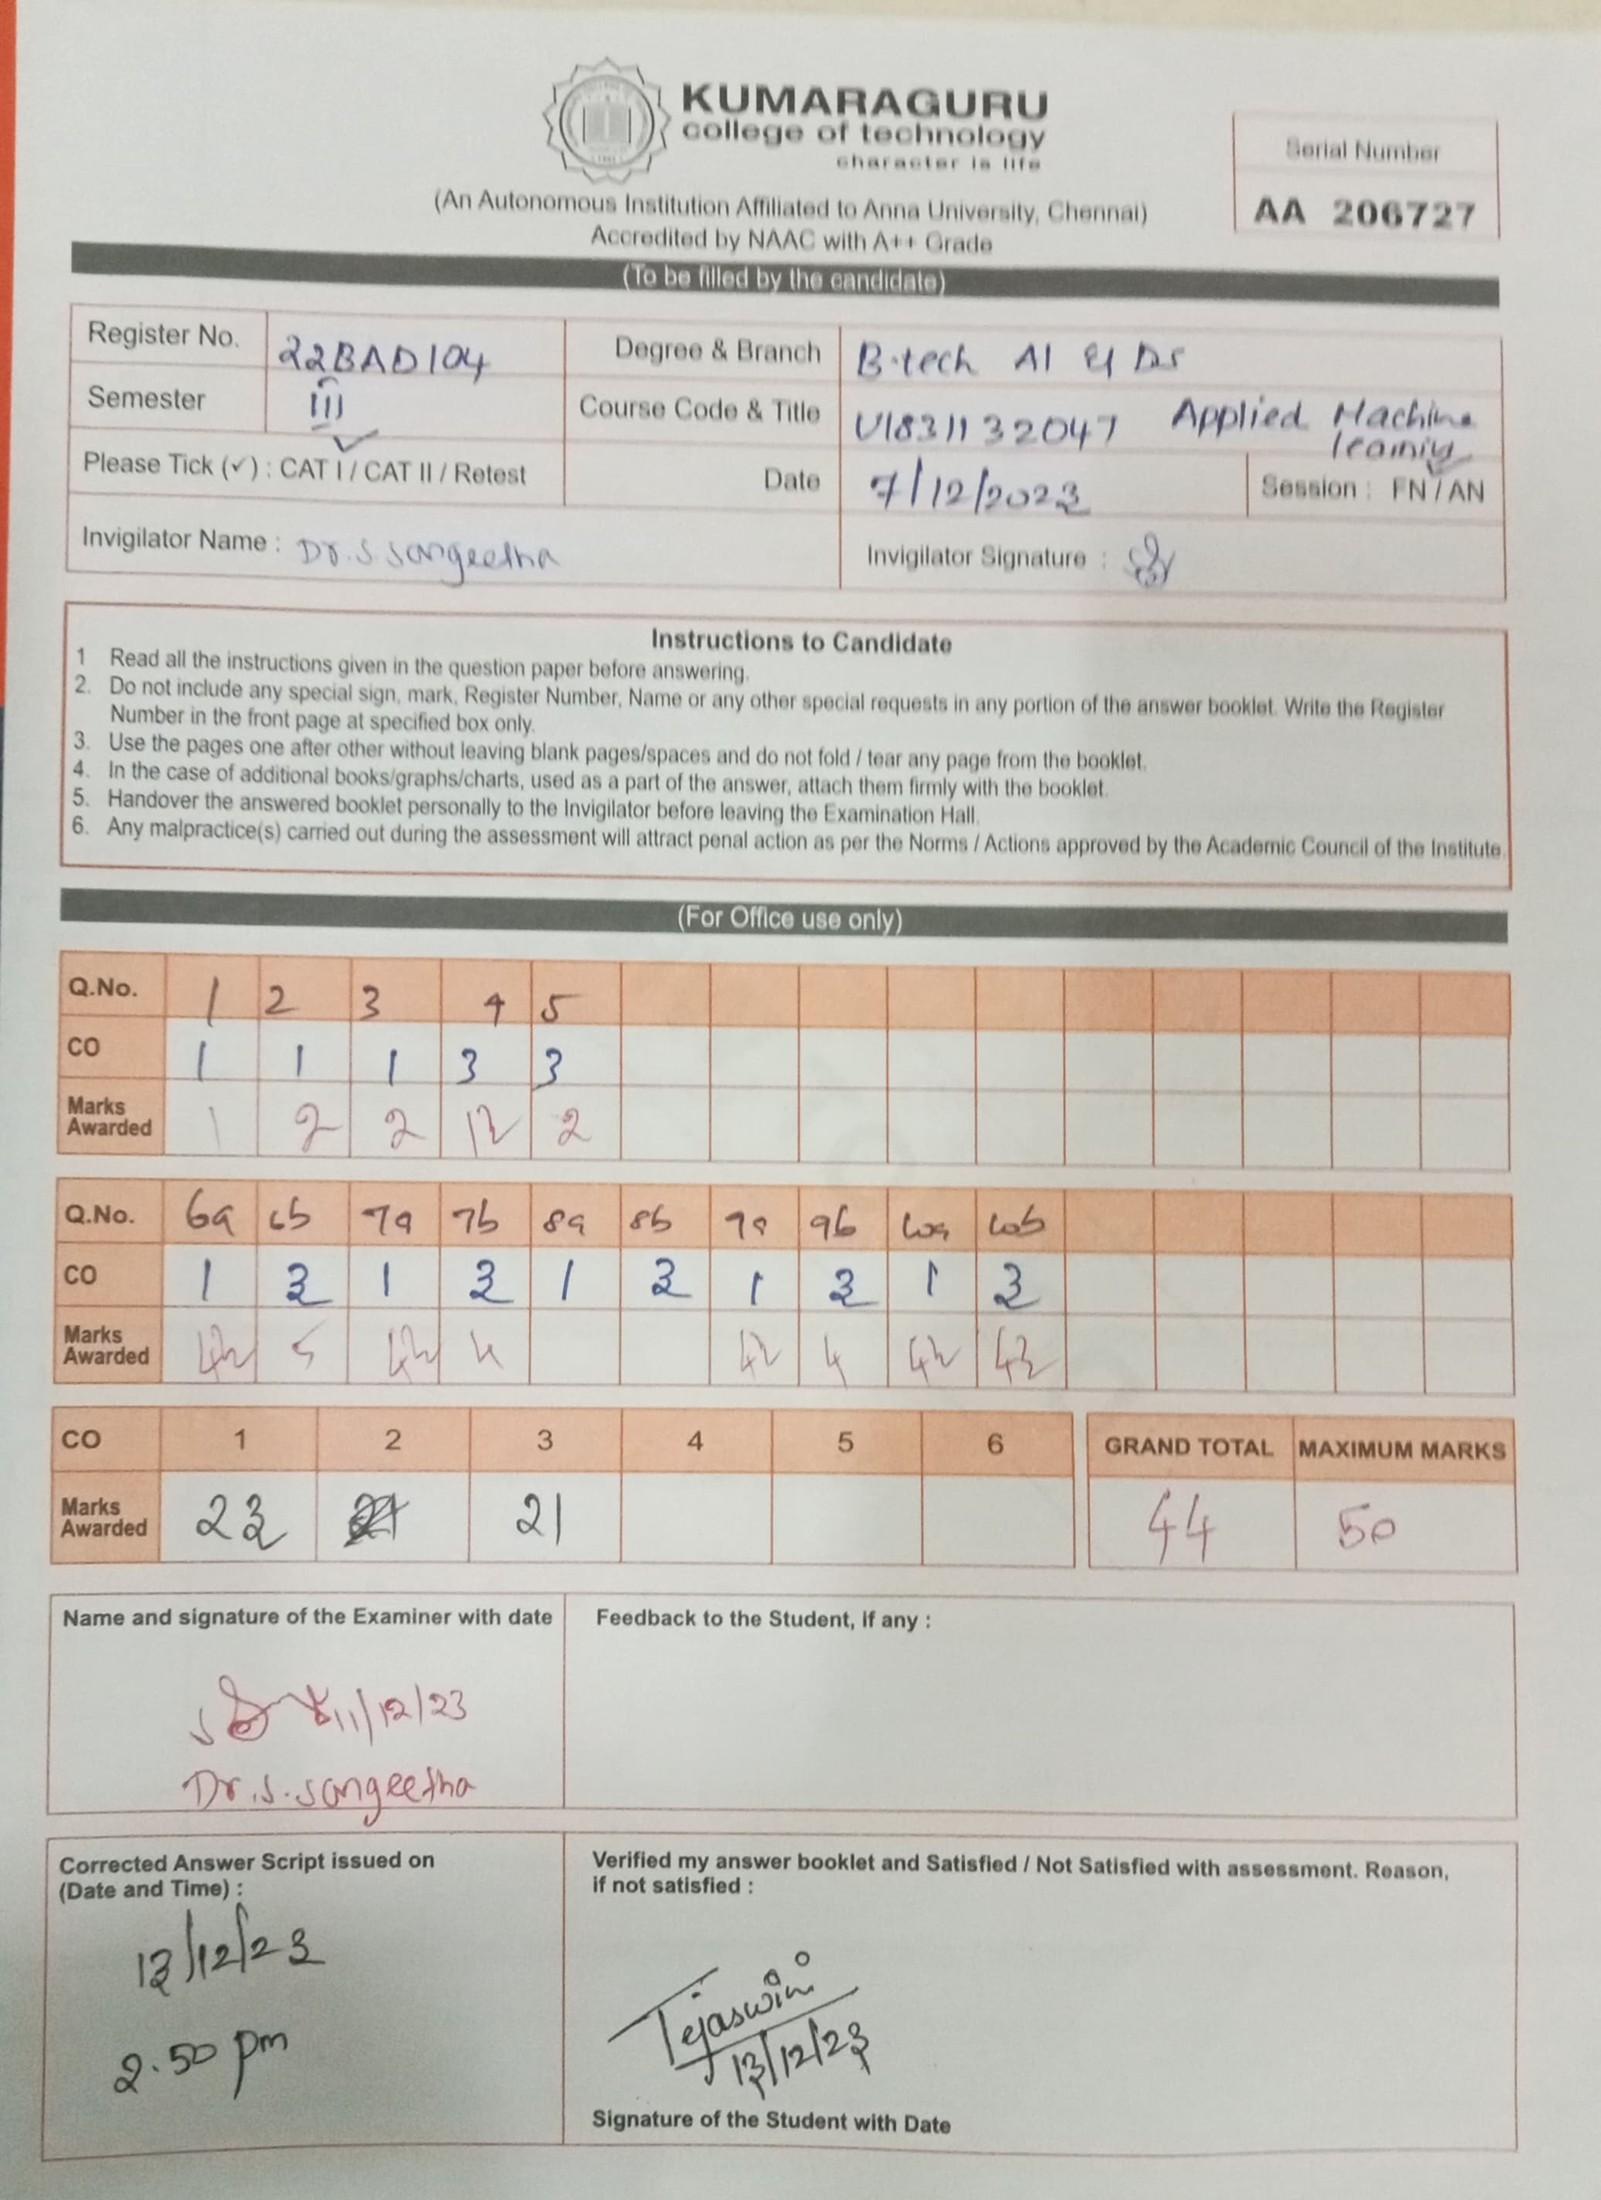 KUMARAGURU
college of technology
character is life
Serial Number
AA 206727
(An Autonomous Institution Affiliated to Anna University, Chennai)
Accredited by NAAC with A++ Grade
(To be filled by the candidate)
Register No. 22BAD104
Degree & Branch B.tech AI & DS
Semester III
Course Code & Title U1831132047 Applied Machine
Please Tick (✓) : CAT I / CAT II / Retest
Date 7/12/2023
Session : FN / AN
Invigilator Name : Dr. S. Sangeetha
Invigilator Signature :
Instructions to Candidate
1 Read all the instructions given in the question paper before answering.
2. Do not include any special sign, mark, Register Number, Name or any other special requests in any portion of the answer booklet. Write the Register
Number in the front page at specified box only.
3. Use the pages one after other without leaving blank pages/spaces and do not fold / tear any page from the booklet.
4. In the case of additional books/graphs/charts, used as a part of the answer, attach them firmly with the booklet.
5. Handover the answered booklet personally to the Invigilator before leaving the Examination Hall.
6. Any malpractice(s) carried out during the assessment will attract penal action as per the Norms / Actions approved by the Academic Council of the Institute.
(For Office use only)
Q.No. 1 2 3 4 5
CO 1 1 1 3 3
Marks
Awarded 1 2 2 2
Q.No. 6a 6b 7a 7b 8a 8b 9a 9b 10a 10b
CO 1 3 1 3 1 3 1 3 1 3
Marks
Awarded 5 4 4
CO 1 2 3 4 5 6
GRAND TOTAL MAXIMUM MARKS
Marks
Awarded 23 21
44 50
Name and signature of the Examiner with date
Feedback to the Student, if any :
11/12/23
Dr. S. Sangeetha
Corrected Answer Script issued on
(Date and Time) :
13/12/23
2.50 pm
Verified my answer booklet and Satisfied / Not Satisfied with assessment. Reason,
if not satisfied :
Tejaswini
13/12/23
Signature of the Student with Date